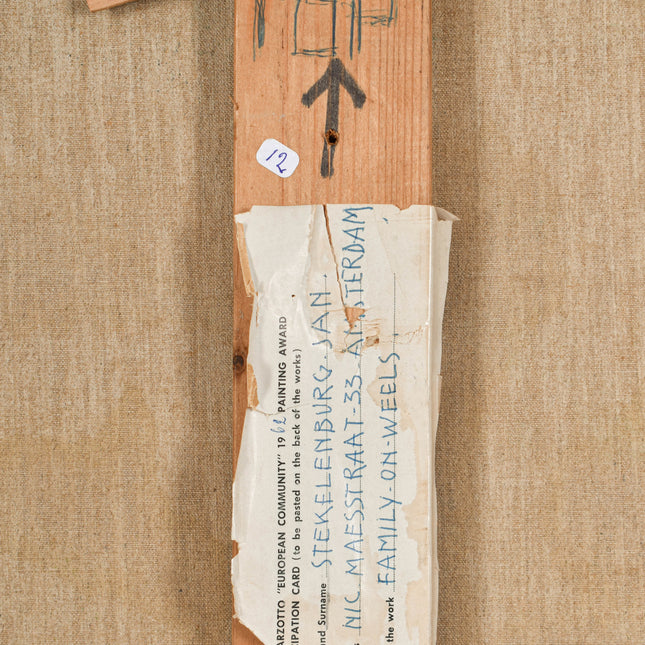 12
ARZOTTO "EUROPEAN COMMUNITY" 1962 PAINTING AWARD
IPATION CARD (to be pasted on the back of the works)
nd Surname STEKELENBURG JAN.
s NIC. MAESSTRAAT-33-AMSTERDAM
the work FAMILY-ON-WEELS.